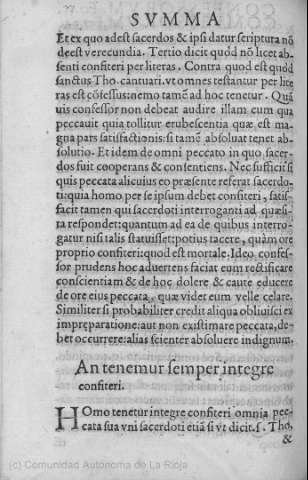 SVMMA
Et ex quo adest sacerdos & ipsi datur scriptura nõ
deest verecundia. Tertio dicit quòd nõ licet ab-
senti confiteri per literas. Contra quod est quòd
sanctus Tho. cantuari. vt omnes testantur per lite
ras est cõfessus: nemo tamẽ ad hoc tenetur. Quã
uis confessor non debeat audire illam cum qua
peccauit quia tollitur erubescentia quæ est ma-
gna pars satisfactionis: si tamẽ absoluat tenet ab-
solutio. Et idem de omni peccato in quo sacer-
dos fuit cooperans & consentiens. Nec sufficit si
quis peccata alicuius eo præsente referat sacerdo-
ti: quia homo per se ipsum debet confiteri, satis-
facit tamen qui sacerdoti interroganti ad quæsi-
ta respondet: quantum ad ea de quibus interro-
gatur nisi talis statuisset: potius tacere, quàm ore
proprio confiteri: quod est mortale. Ideo confes-
sor prudens hoc aduertens faciat eum rectificare
conscientiam & de hoc dolere & caute educere
de ore eius peccata, quæ videt eum velle celare.
Similiter si probabiliter credit aliqua obliuisci ex
impręparatione: aut non existimare peccata, de-
bet occurrere: alias scienter absoluere indignum.
An tenemur semper integre
confiteri.
HOmo tenetur integre confiteri omnia pec-
cata sua vni sacerdoti etiã si vt dicit. S. Tho.
&
(c) Comunidad Autónoma de La Rioja